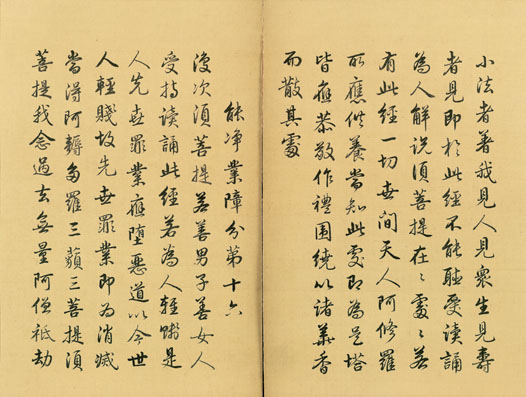 小法者著我見人見眾生見壽
者見即於此經不能聽受讀誦
為人解說須菩提在〻處〻若
有此經一切世間天人阿修羅
所應供養當知此處即為是塔
皆應恭敬作禮圍繞以諸華香
而散其處
能淨業障分第十六
復次須菩提若善男子善女人
受持讀誦此經若為人輕賤是
人先世罪業應墮惡道以今世
人輕賤故先世罪業即為消滅
當得阿耨多羅三藐三菩提須
菩提我念過去無量阿僧祇劫